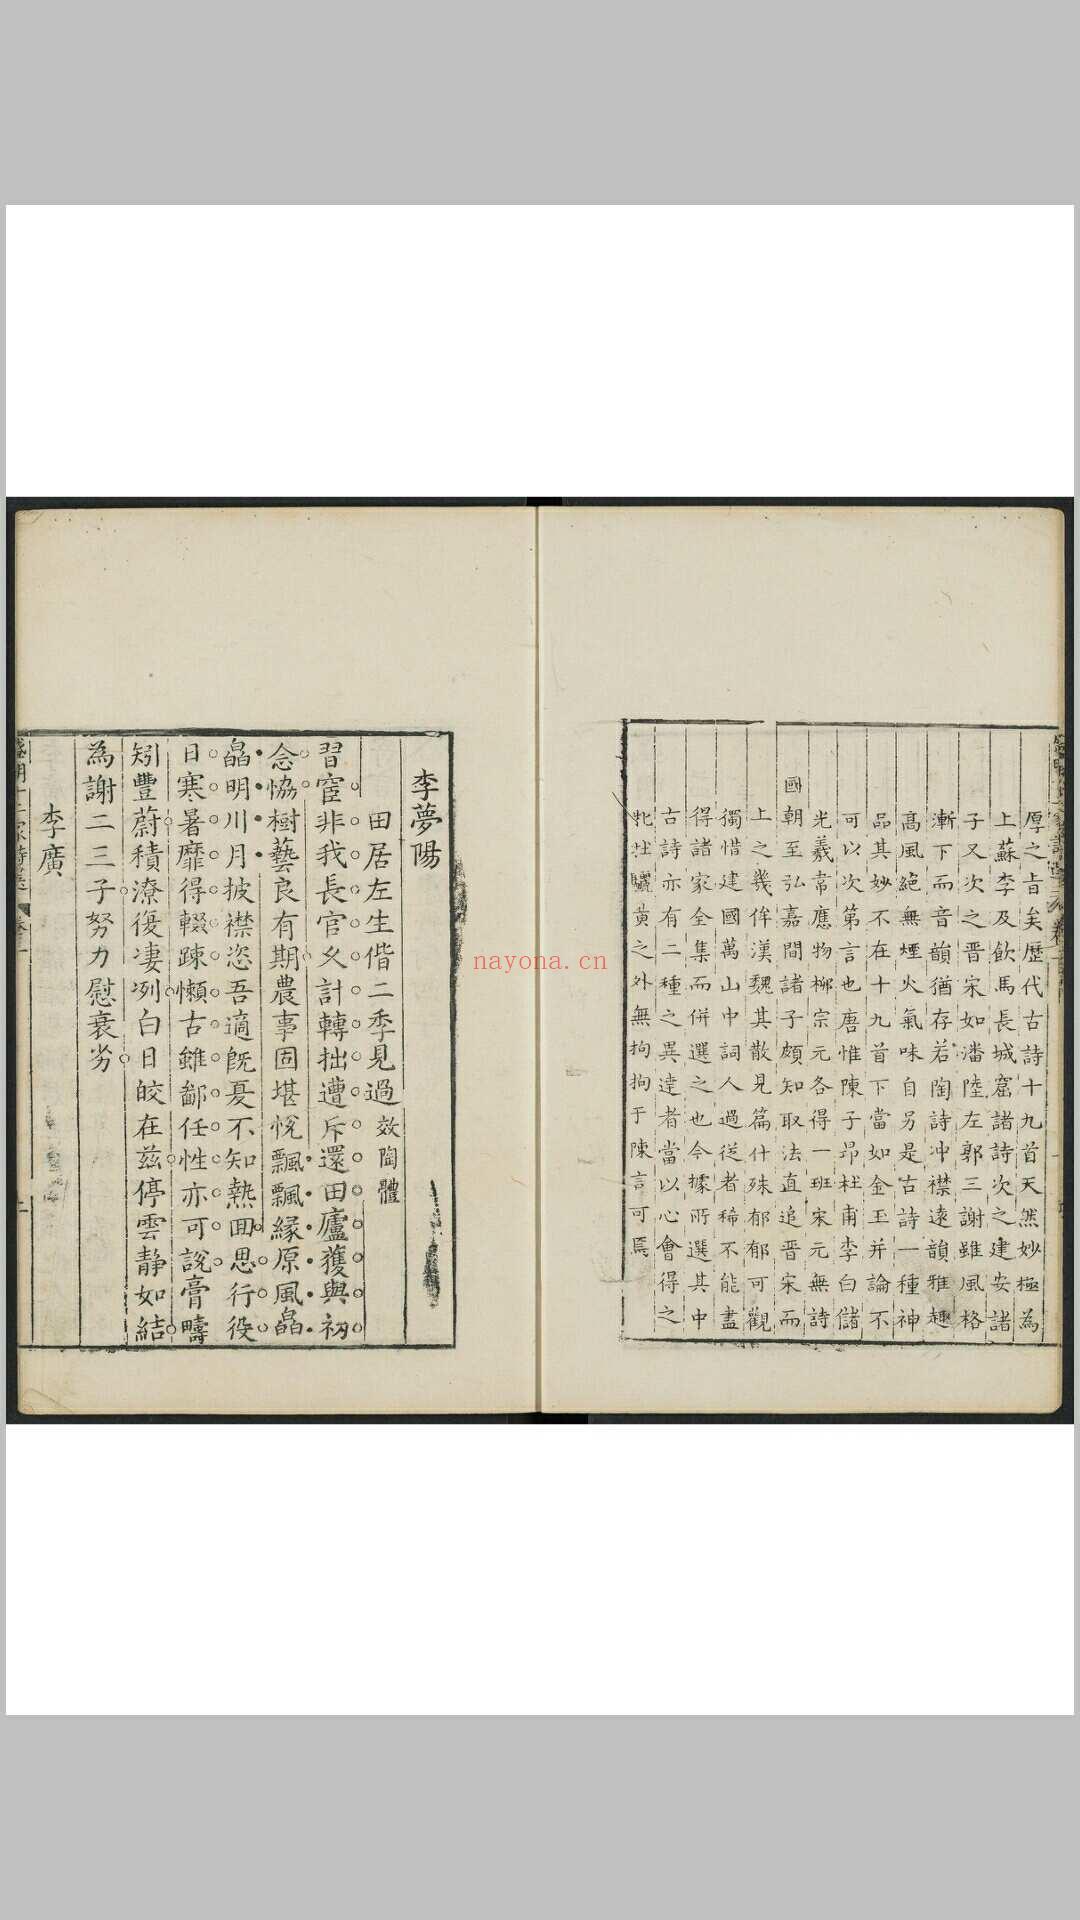 厚之旨矣歷代古詩十九首天然妙極為
上蘇李及飲馬長城窟諸詩次之建安諸
子又次之晋宋如潘陸左郭三謝雖風格
漸下而音韻猶存若陶詩冲襟遠韻雅趣
高風絕無煙火氣味自另是古詩一種神
品其妙不在十九首下當如金玉并論不
可以次第言也唐惟陳子昂杜甫李白儲
光羲韋應物柳宗元各得一班宋元無詩
國朝至弘嘉間諸子頗知取法直追晋宋而
上之幾侔漢魏其散見篇什殊郁郁可觀
獨惜建國萬山中詞人過從者稀不能盡
得諸家全集而併選之也今據所選其中
古詩亦有二種之異達者當以心會得之
牝牡驪黃之外無拘拘于陳言可焉
李夢陽
田居左生偕二季見過效陶體
習宦非我長官久計轉拙遭斥還田廬獲與初
念恊樹藝良有期農事固堪悅飄飄緣原風皛
皛明川月披襟恣吾適旣憂不知熱囬思行役
日寒暑靡得輟踈懶古雖鄙任性亦可說膏疇
矧豐蔚積潦復凄冽白日皎在茲停雲靜如結
為謝二三子努力慰衰劣
李廣
nayona.cn